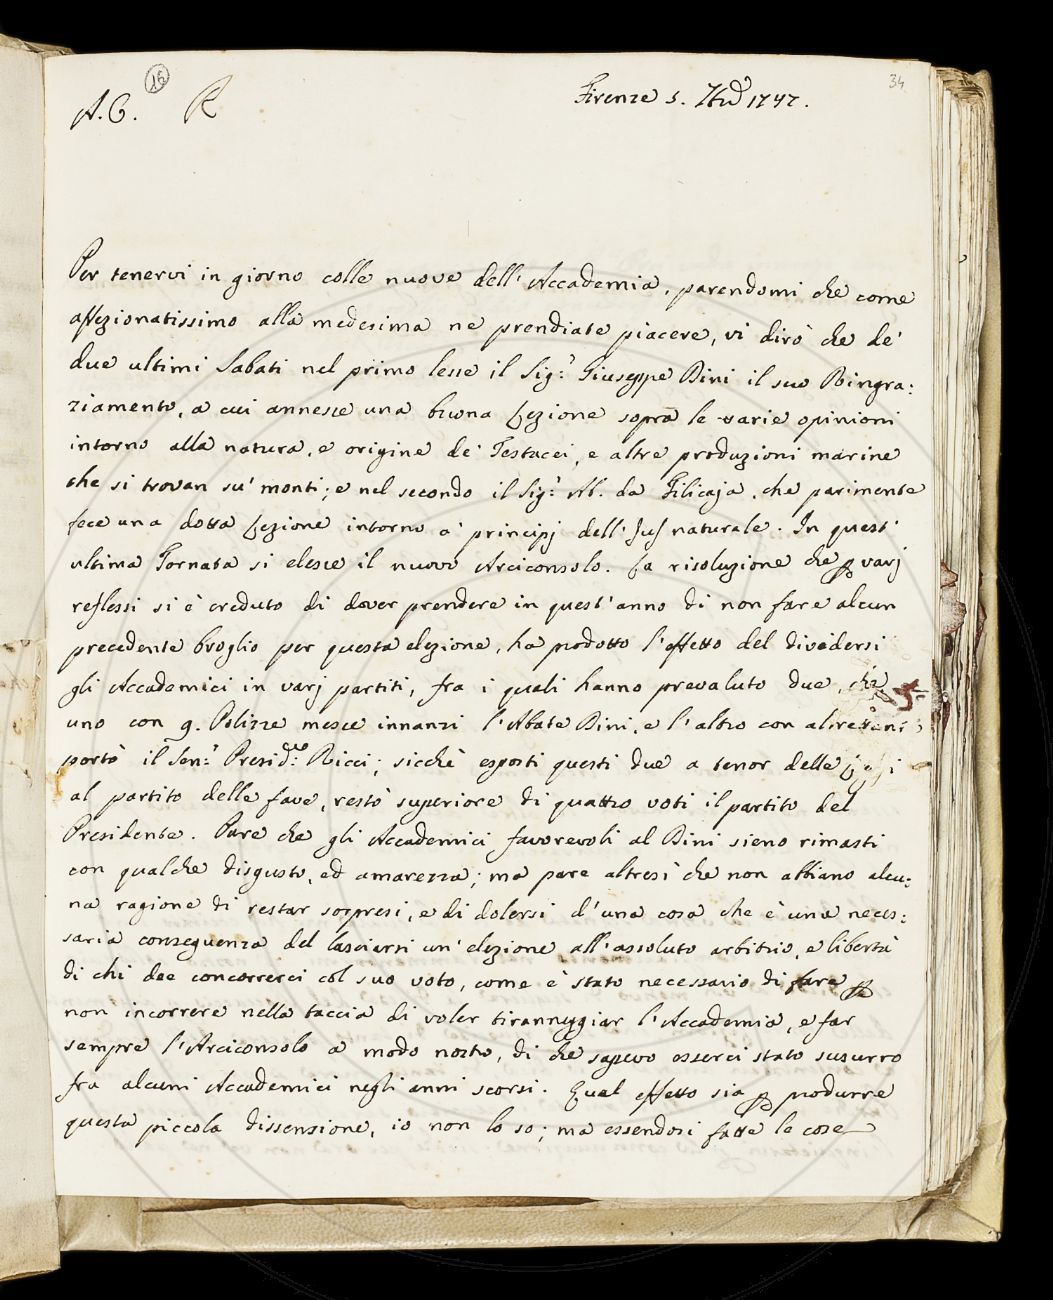 15
34
A. C. R
Firenze 5. 7bre 1747.
Per tenervi in giorno colle nuove dell'Accademia, parendomi che come
affezionatissimo alla medesima ne prendiate piacere, vi dirò che de'
due ultimi Sabati nel primo lesse il Sig.r Giuseppe Bini il suo Ringra:
ziamento, a cui annesse una buona Lezione sopra le varie opinioni
intorno alla natura, e origine de' Testacei, e altre produzioni marine
che si trovan su' monti; e nel secondo il Sig.r Ab. da Filicaja, che parimente
fece una dotta Lezione intorno a' principj dell'Jus naturale. In quest'
ultima Tornata si elesse il nuovo Arciconsolo. La risoluzione che p varj
reflessi si è creduto di dover prendere in quest'anno di non fare alcun
precedente broglio per questa elezione, ha prodotto l'effetto del dividersi
gli Accademici in varj partiti, fra i quali hanno prevaluto due, che
uno con 9. Polizze messe innanzi l'Abate Bini, e l'altro con altrettante
portò il Sen.r Presid.te Ricci; sicchè esposti questi due a tenor delle Leggi
al partito delle fave, restò superiore di quattro voti il partito del
Presidente. Pare che gli Accademici favorevoli al Bini sieno rimasti
con qualche disgusto, ed amarezza; ma pare altresì che non abbiano alcu:
na ragione di restar sorpresi, e di dolersi d'una cosa che è una neces:
saria conseguenza del lasciarsi un'elezione all'assoluto arbitrio, e libertà
di chi dee concorrerci col suo voto, come è stato necessario di fare p
non incorrere nella taccia di voler tiranneggiar l'Accademia, e far
sempre l'Arciconsolo a modo nostro, di che sapevo esserci stato susurro
fra alcuni Accademici negli anni scorsi. Qual effetto sia p produrre
questa piccola dissensione, io non lo so; ma essendosi fatte le cose